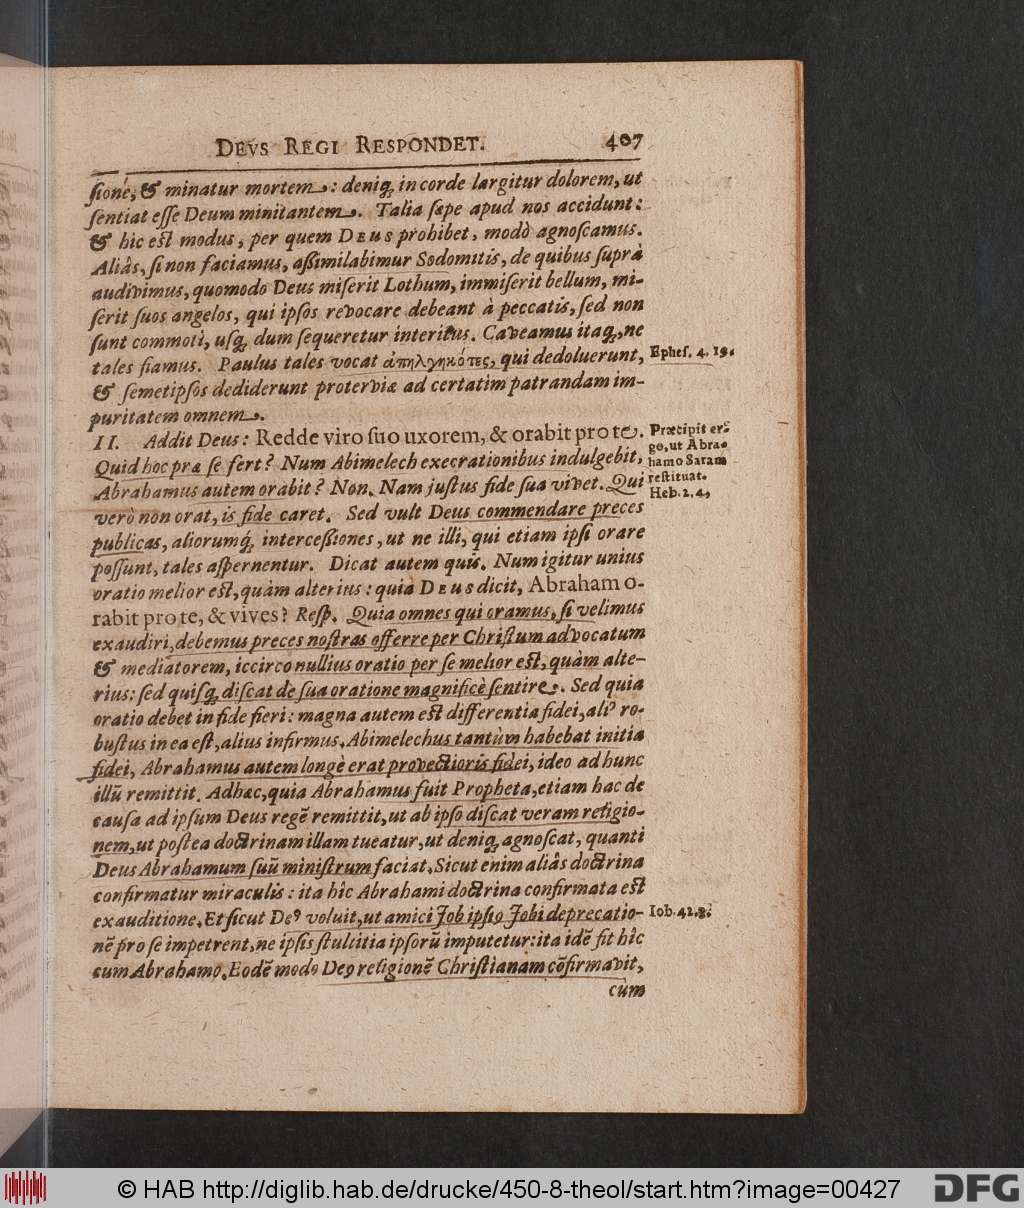 DEVS REGI RESPONDET. 407
ſionē, & minatur mortem: deniq́, in corde largitur dolorem, ut
ſentiat eſſe Deum minitantem. Talia ſæpe apud nos accidunt:
& hic est modus, per quem DEUS prohibet, modò agnoſcamus.
Aliâs, ſi non faciamus, aßimilabimur Sodomitis, de quibus ſuprà
audivimus, quomodo Deus miſerit Lothum, immiſerit bellum, mi-
ſerit ſuos angelos, qui ipſos revocare debeant à peccatis, ſed non
ſunt commoti, uſq́, dum ſequeretur interitus. Caveamus itaq́, ne
tales fiamus. Paulus tales vocat ἀπηλγηκότες, qui dedoluerunt,
Epheſ. 4. 19.
& ſemetipſos dediderunt proterviæ ad certatim patrandam im-
puritatem omnem.
II. Addit Deus: Redde viro ſuo uxorem, & orabit pro te.
Quid hoc præ ſe fert? Num Abimelech execrationibus indulgebit,
Abrahamus autem orabit? Non. Nam juſtus fide ſua vivet. Qui
Præcipit er-
go, ut Abra-
hamo Saram
reſtituat.
Heb. 2. 4,
verò non orat, is fide caret. Sed vult Deus commendare preces
publicas, aliorumq́, interceßiones, ut ne illi, qui etiam ipſi orare
poſſunt, tales aſpernentur. Dicat autem quis. Num igitur unius
oratio melior est, quàm alterius: quia DEUS dicit, Abraham o-
rabit pro te, & vives? Reſp. Quia omnes qui oramus, ſi velimus
exaudiri, debemus preces noſtras offerre per Chriſtum advocatum
& mediatorem, iccirco nullius oratio per ſe melior est, quàm alte-
rius: ſed quiſq́, diſcat de ſua oratione magnificè ſentire. Sed quia
oratio debet in fide fieri: magna autem est differentia fidei, aliꝰ ro-
buſtus in ea eſt, alius infirmus. Abimelechus tantùm habebat initia
fidei, Abrahamus autem longè erat provectioris fidei, ideo ad hunc
illū remittit. Adhæc, quia Abrahamus fuit Propheta, etiam hac de
cauſa ad ipſum Deus regē remittit, ut ab ipſo diſcat veram religio-
nem, ut poſtea doctrinam illam tueatur, ut deniq́, agnoſcat, quanti
Deus Abrahamum ſuū miniſtrum faciat. Sicut enim aliâs doctrina
confirmatur miraculis: ita hîc Abrahami doctrina confirmata est
exauditione. Et ſicut Deꝰ voluit, ut amici Job ipſiꝰ Jobi deprecatio-
Iob. 42. 8.
nē pro ſe impetrent, ne ipſis ſtultitia ipſorū imputetur: ita idē fit hîc
cum Abrahamo. Eodē modo Deꝰ religionē Chriſtianam cōfirmavit,
cùm
© HAB http://diglib.hab.de/drucke/450-8-theol/start.htm?image=00427
DFG